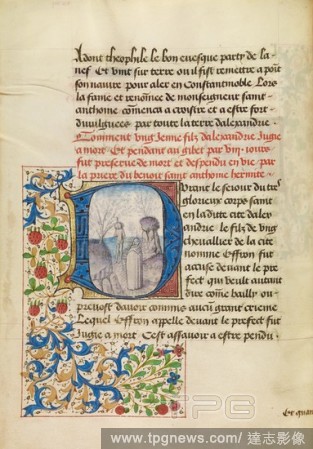 Adont theophile le bon evesque party de la
nef Et vint sur terre ou il fist remettre a point
son navire pour aler en Constantinoble Lors
la fame et renomee de monseigneur saint
anthoine comenca a croistre et a estre fort
divulguees par toute la terre dalexandre.
Comment vng Jenne filz dalexandrie Jugie
a mort Et pendant au gibet par viii. jours
fut preserve de mort et despendu en vie par
la priere du benoit saint anthoine hermite.
Durant le sejour du tres
glorieux corps saint
en la dite cite dalex
andrie le filz de vng
chevallier de la cite
nomme Effron fut
accuse devant le pre
fect qui veult autant
dire come bailly ou
prevost davoir commis aucun grant crieme
Lequel Effron appelle devant le prefect fut
Jugie a mort Cest assavoir a estre pendu.
Et quan
TPG
www.tpgnews.com/ 達志影像